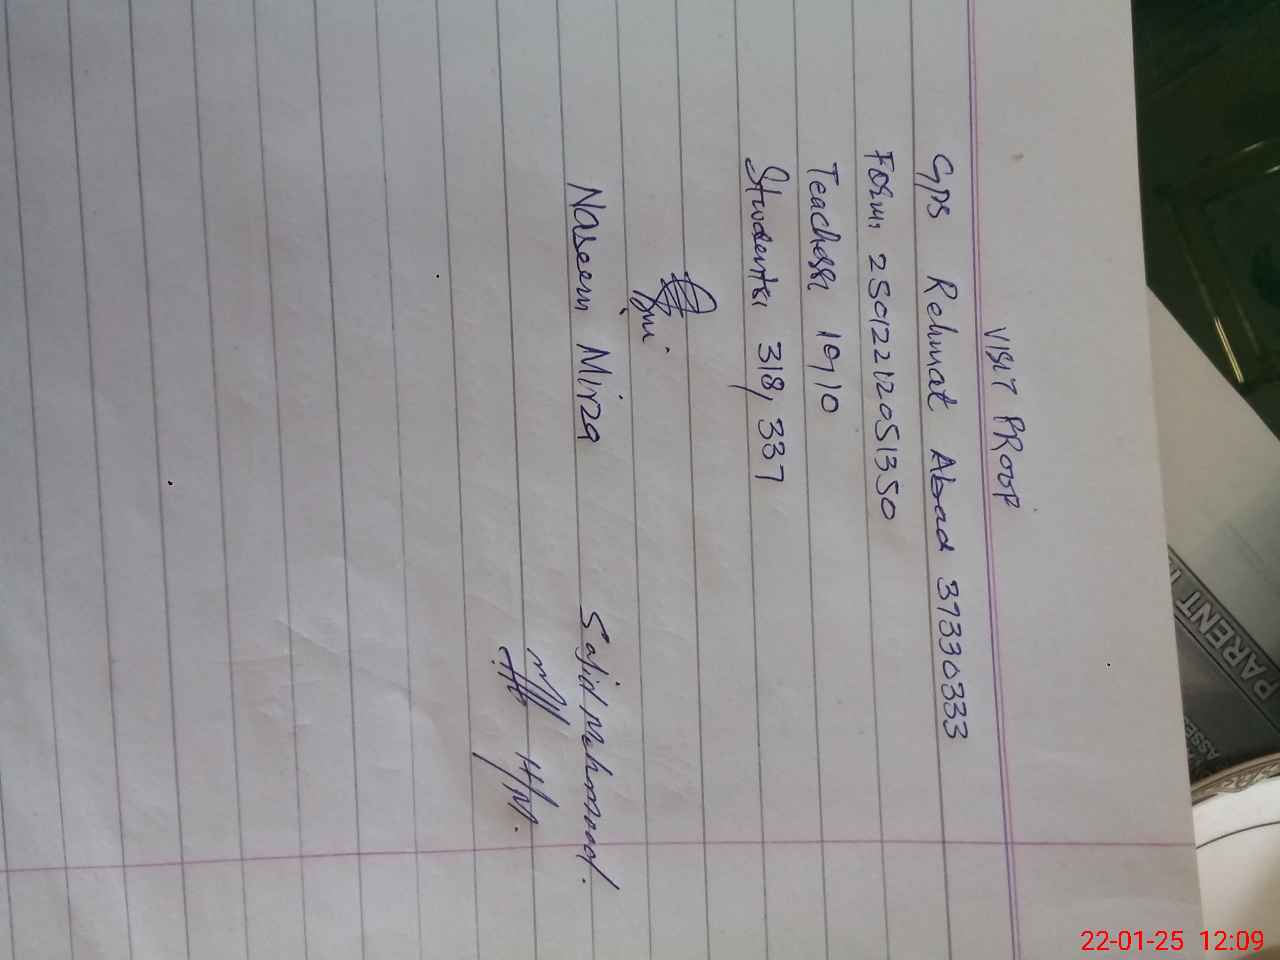 VISIT PROOF
GPS Rehmat Abad 37330333
Form, 25012212051350
Teachers 10,10
Students 318, 337
Naseem Mirza
Sajid Mehmood.
H/M.
PARENT
ASSE
22-01-25 12:09